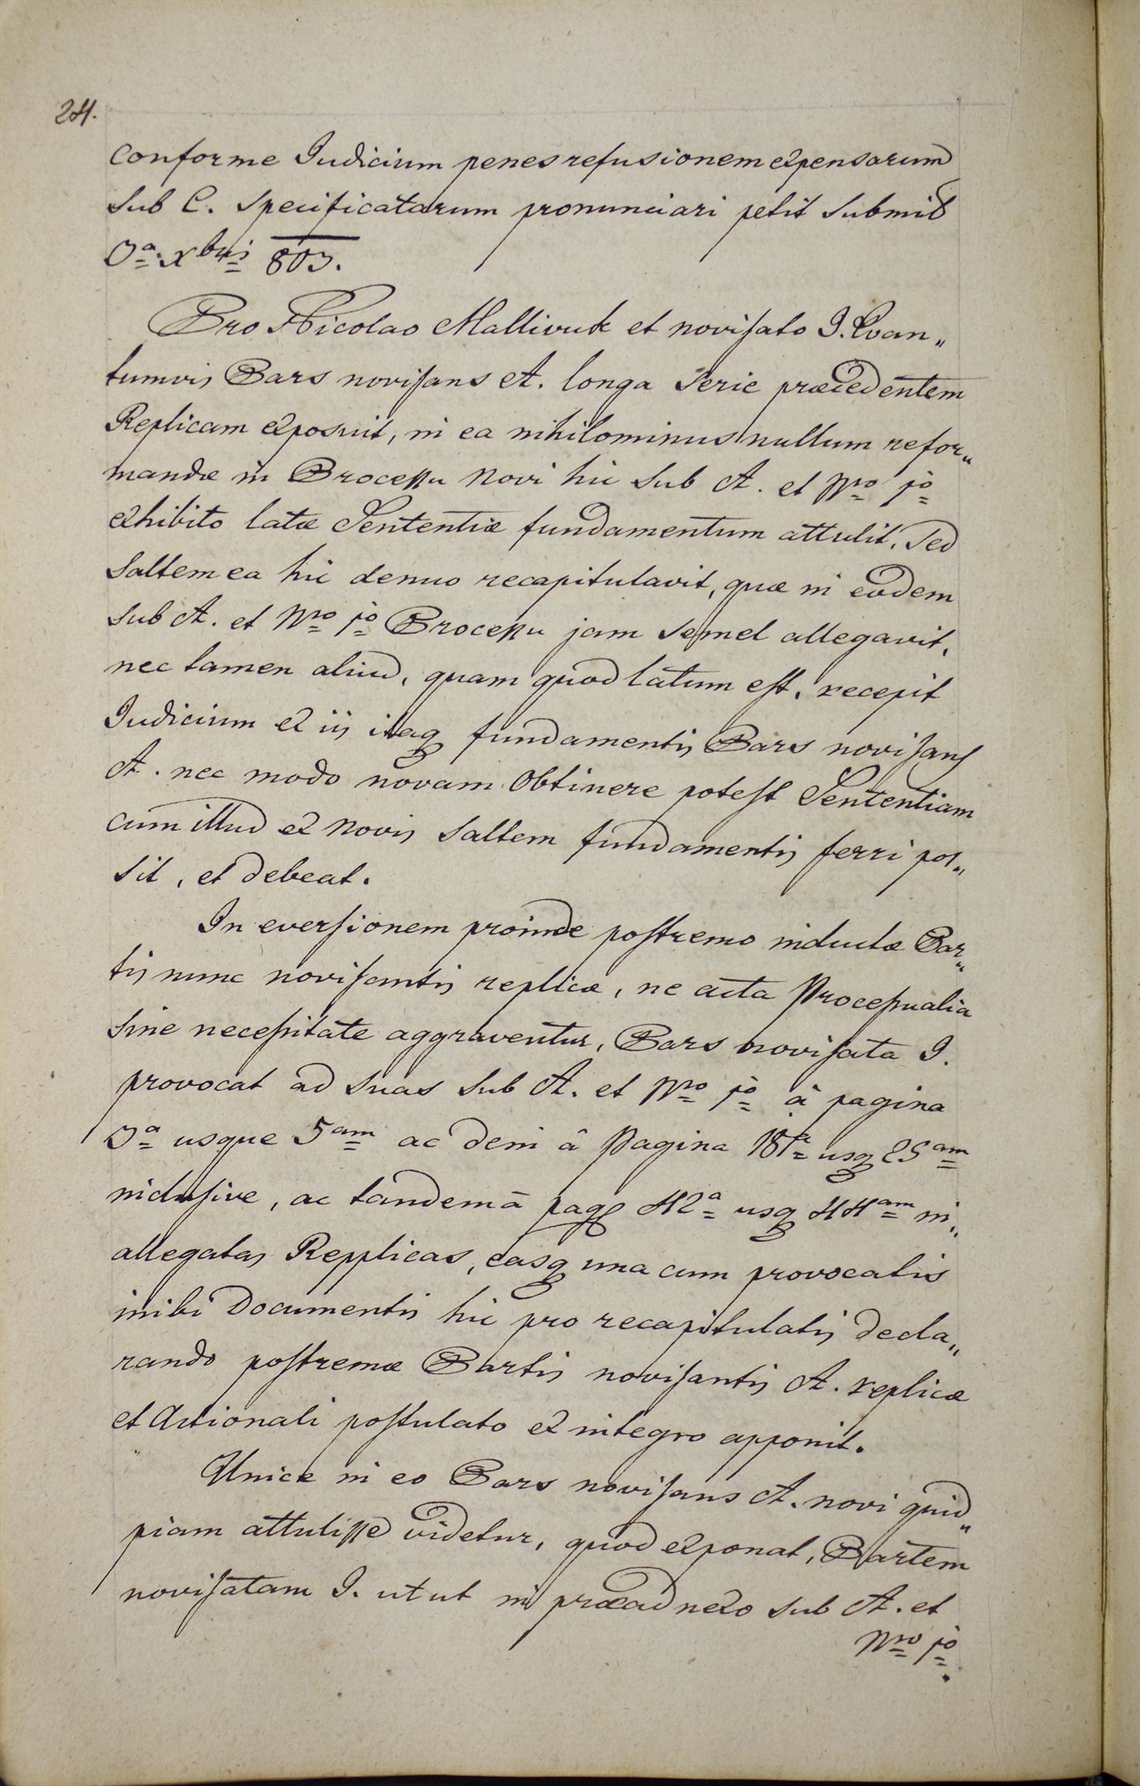 24.
conforme Judicium penes refusionem expensarum
sub C. specificatarum pronunciari petit submit
3ª Xbris 803.
Pro Nicolao Mallivuk et novisato I. Quan„
tumvis Pars novisans A. longa serie præcedentem
Replicam exposuit, in ea nihilominus nullum refor„
mandæ in Processu novi hic sub A. et Nro 1º
exhibito latæ Sententiæ fundamentum attulit, sed
saltem ea hic denuo recapitulavit, quæ in eodem
sub A. et Nro 1º Processu jam semel allegavit,
nec tamen aliud, quam quod latum est, recepit
Judicium ex iis itaq fundamentis Pars novisans
A. nec modo novam obtinere potest Sententiam
cum illud ex novis saltem fundamentis ferri pos„
sit, et debeat.
In eversionem proinde postremo inductæ Par„
tis nunc novisantis replicæ, ne acta Processualia
sine necessitate aggraventur, Pars novisata I.
provocat ad suas sub A. et Nro 1º à pagina
3ª usque 5am ac dein â Pagina 18ª usq 25am
inclusive, ac tandem â pag 42ª usq 44am in„
allegatas Repplicas, easq una cum provocatis
inibi Documentis hic pro recapitulatis decla„
rando postremæ Partis novisantis A. replicæ
et Actionali postulato ex integro apponit.
Unice in eo Pars novisans A. novi quid„
piam attulisse videtur, quod exponat, Partem
novisatam I. utut in præadnexo sub A. et
Nro 1º.